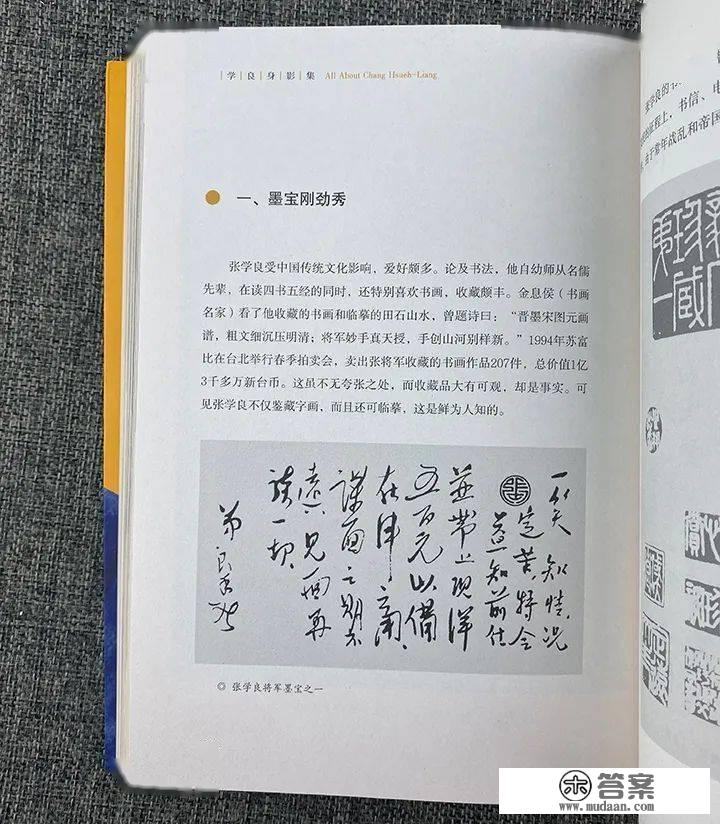 学良身影集 All About Chang Hsueh-Liang
一、墨宝刚劲秀
张学良受中国传统文化影响，爱好颇多。论及书法，他自幼师从名儒
先辈，在读四书五经的同时，还特别喜欢书画，收藏颇丰。金息侯（书画
名家）看了他收藏的书画和临摹的田石山水，曾题诗曰：“晋墨宋图元画
谱，粗文细沉压明清；将军妙手真天授，手创山河别样新。”1994年苏富
比在台北举行春季拍卖会，卖出张将军收藏的书画作品207件，总价值1亿
3千多万新台币。这虽不无夸张之处，而收藏品大有可观，却是事实。可
见张学良不仅鉴藏字画，而且还可临摹，这是鲜为人知的。
知情况
定苦特令
知前往
并带上现洋
五百元以备
在津之需
谋面之期不
远公兄面再
谈一切
弟良
◎ 张学良将军墨宝之一
张学良的书
的征程上，书信、电
由于常年战乱和帝国
答案
www.mudaan.com